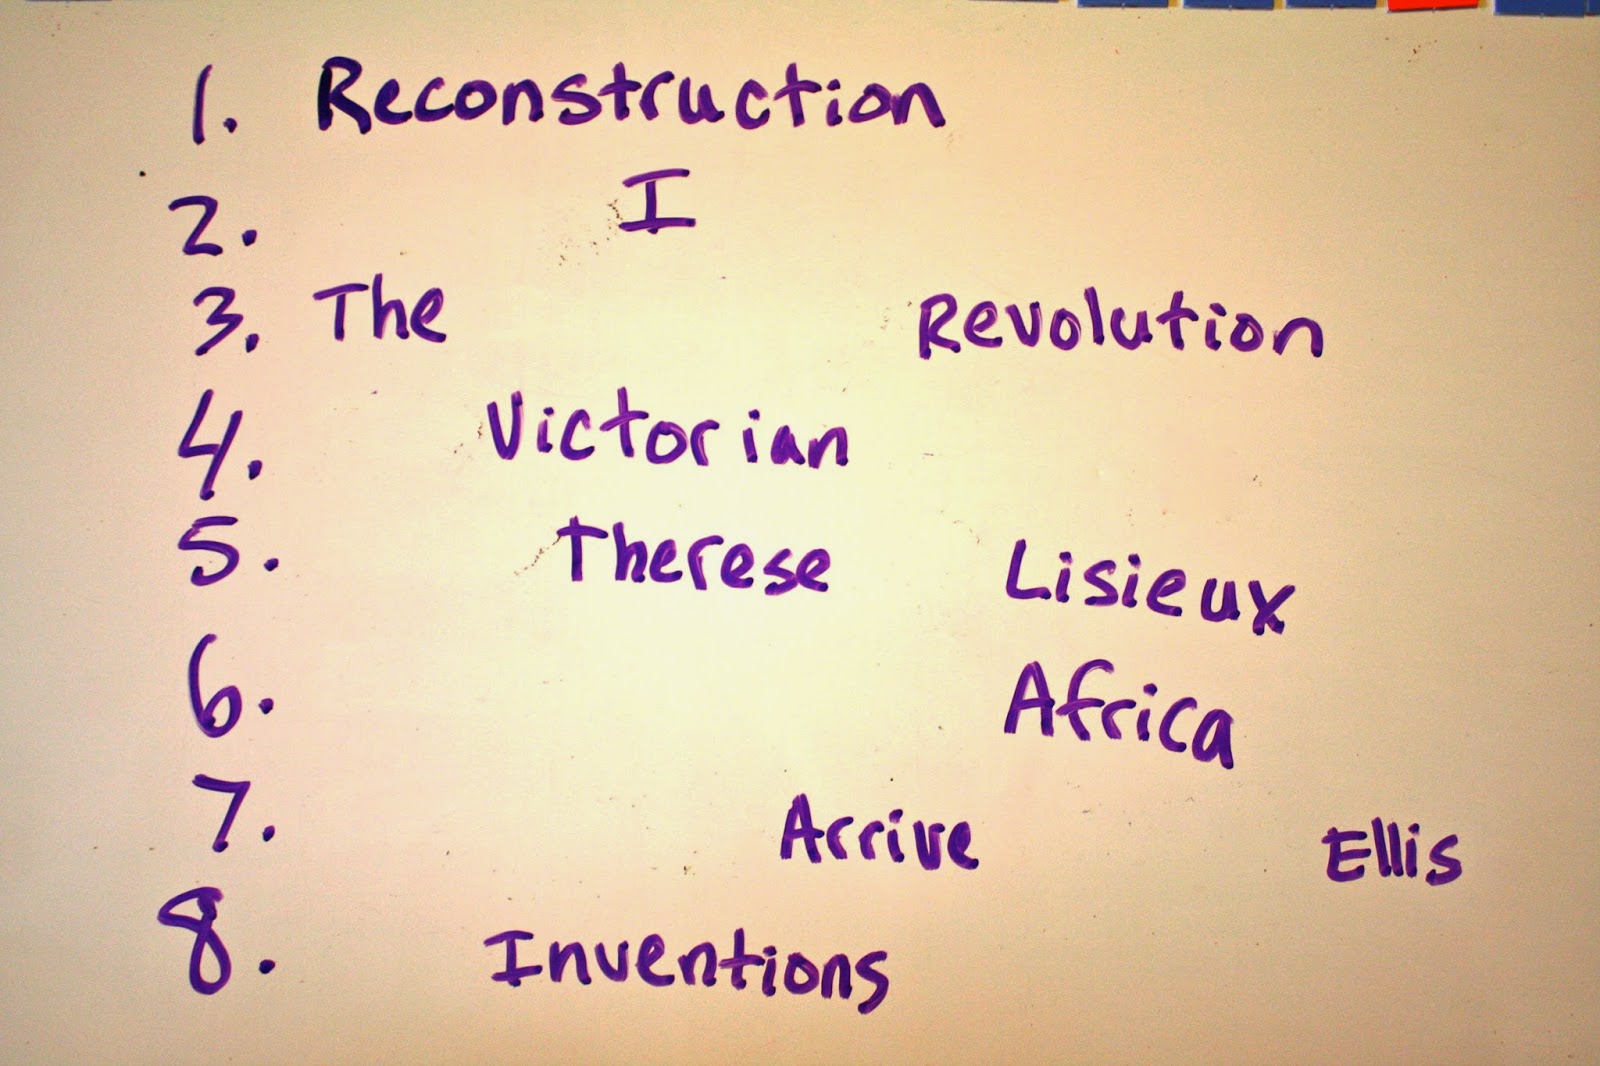 1. Reconstruction
2. I
3. The Revolution
4. Victorian
5. Therese Lisieux
6. Africa
7. Arrive Ellis
8. Inventions